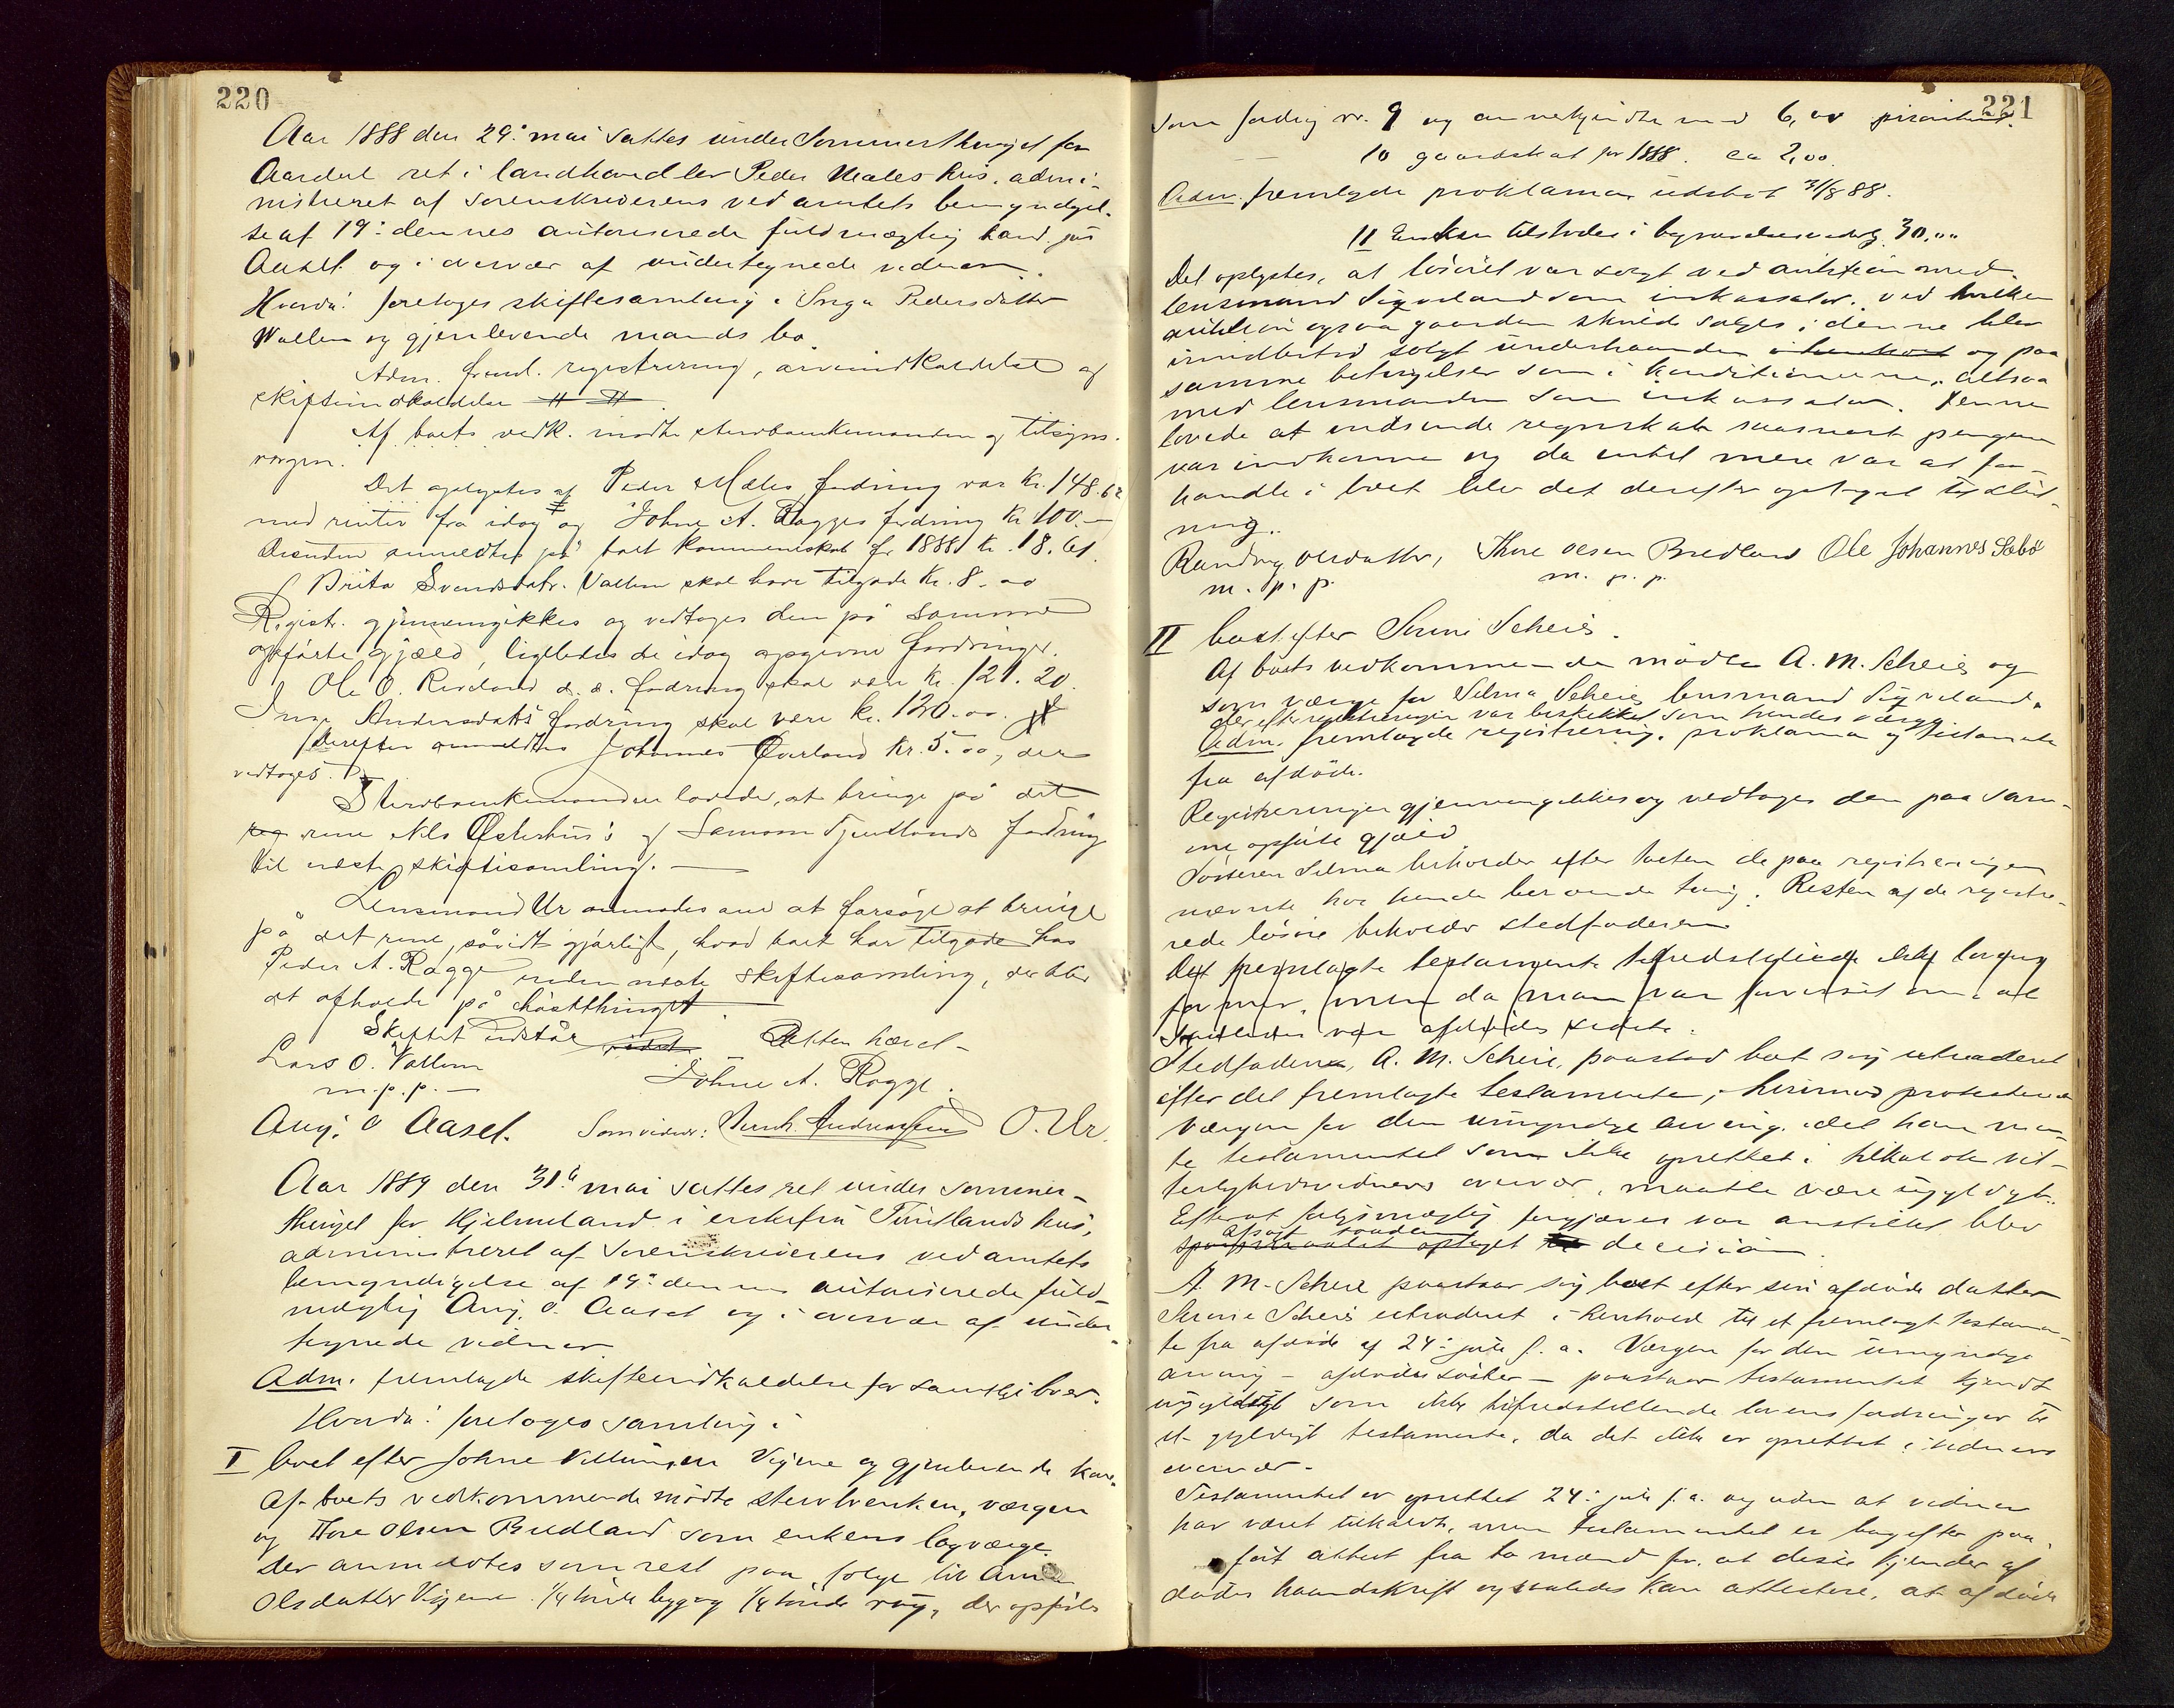 220
Aar 1888 den 29: mai sattes under Sommerthinget for
Aardal ret i landhandler Peder Mæles hus, admi-
nistreret af Sorenskriverens ved amtets bemyndigel-
se af 19: dennes autoriserede fuldmægtig kand. jur.
Aasel og i overvær af undertegnede vidner.
Hvorda! foretoges skiftesamling i Inga Pedersdatter
Wallem og gjenlevende mands bo.
Adm. freml. registrering, arveindkaldelse og
skifteindkaldelse
Af boets vedk. mødte stervboenkemanden og tilsyns-
værgen.
Det oplystes at Peder Mæles fordring var Kr. 148.62
med renter fra idag og Johne A. Ragges fordring Kr 100.-
Desuden anmeldtes på boet kommuneskat for 1888 Kr. 18.61
Brita Svendsdatr. Vallem skal have tilgode Kr. 8.00
Registr. gjennemgikkes og vedtoges den på samme
opførte gjæld, ligeledes de idag opgivne fordringer.
Ole O. Riveland d. æ. fordring skal være Kr. 121.20
Inga Andersdatrs fordring skal være kr. 120.00.
Derefter anmeldtes Johannes Øverland Kr. 5.00, der
vedtoges.
Stervboenkemanden lovede, at bringe på det
rene Nils Østerhus's og Samson Tjentlands fordring
til næste skiftesamling. —
Lensmand Ur anmodes om at forsøge at bringe
på det rene, såvidt gjørligt, hvad boet har tilgode hos
Peder A. Ragge inden næste skiftesamling, der blir
at afholde på høstthinget.
Skiftet udstår Retten hævet -
Lars O. Vallem Johne A. Ragge.
m.p.p. —
Aug. O Aasel. Som vidner: Andreassen O. Ur.
Aar 1889 den 31: mai sattes ret under sommer-
thinget for Hjelmeland i enkefru Tuntlands hus,
administreret af Sorenskriverens ved amtets
bemyndigelse af 19: dennes autoriserede fuld-
mægtig Aug. O. Aasel og i overvær af under-
tegnede vidner.
Adm. fremlagde skifteindkaldelse for samtlige boer.
Hvorda! foretoges samling i
I boet efter Johne Vigene og gjenlevende kone.
Af boets vedkommende mødte stervbenken, værgen
og Thore Olsen Bredland som enkens lagværge.
Der anmeldtes som rest paa følge til Anna
Olsdatter Vigene 1/4 tønde byg og 1/4 tønde rug, der opføres
221
som fordring nr. 9 og anerkjendte med 6,00 prioritet.
10 gaardskat for 1888. ca 2,00.
Adm. fremlagde proklama udstedt 31/8 88.
11 Enken tilstodes i begravelsesudlæg 30,00
Det oplystes, at løsøret var solgt ved auktion med
lensmand Sigveland som inkassator, ved hvilken
auktion ogsaa gaarden skulde sælges; denne blev
imidlertid solgt underhaanden og paa
samme betingelser som i konditionerne, altsaa
med lensmanden som inkassator. Denne
lovede at indsende regnskab saasnart pengene
var indkomne og da intet mere var at for-
handle i boet blev det derefter optaget til slut-
ning.
Randveg Olsdatter, Thore Olsen Bredland Ole Johannes Sæbø
m. p. p. m. p. p.
II boet efter Serine Scheie.
Af boets vedkommende mødte A. M. Scheie og
som værge for Selma Scheie lensmand Sigveland,
der efter registreringen var beskikket som hendes værge.
Adm. fremlagde registrering, proklama og testamente
fra afdøde.
Registreringen gjennemgikkes og vedtoges den paa sam-
me opførte gjæld
Søsteren Selma beholder efter taxten de paa registreringen
nævnte hos hende beroende ting. Resten af de registre-
rede løsøre beholder stedfaderen
Det fremlagte testamente tilfredsstillede ikke lovens
former, men da man var forvisset om, at
saaledes var afdødes sidste.
Stedfaderen, A. M. Scheie, paastod boet sig extraderet
efter det fremlagte testamente; herimod protesterede
værgen for den umyndige arving, idet han men-
te testamentet som ikke oprettet i tilkaldte vit-
terlighedsvidners overvær, maatte være ugyldigt.
Efterat forligsmægling forgjæves var anstillet blev
afsagt saadan
spørgsmaalet optaget til decision.
A. M. Scheie paastaar sig boet efter sin afdøde datter
Serine Scheie extraderet i henhold til et fremlagt testamen-
te fra afdøde af 24: juli f. a. Værgen for den umyndige
arving - afdødes søster - paastaar testamentet kjendt
ugyldigt som ikke tilfredsstillende lovens fordringer til
et gyldigt testamente, da det ikke er oprettet i vidners
overvær.
Testamentet er oprettet 24: juli f. a. og uden at vidner
har været tilkaldt, men testamentet er bagefter paa-
ført attest fra to mænd for, at disse kjender af-
dødes haandskrift og saaledes kan attestere, at afdøde